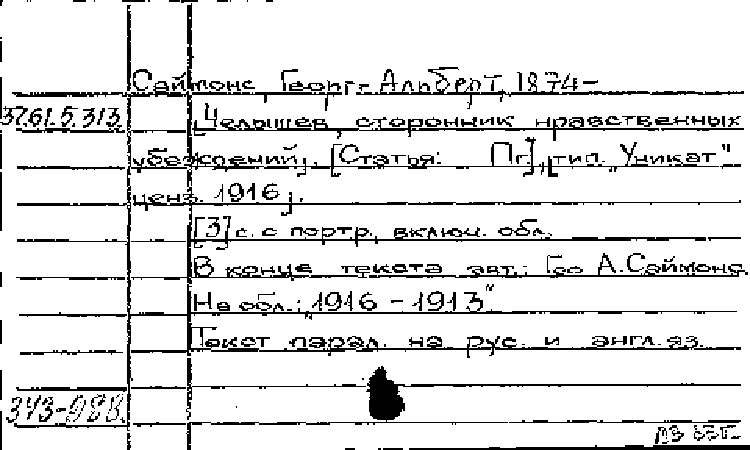 Саймонс, Георг-Альберт, 1874-
37.61.5.313
[Челышев, сторонник нравственных
убеждений]. [Статья: Пг], [тип. "Уникат"
ценз. 1916].
[3] с. с портр., включ. обл.
В конце текста авт.: Гео А. Саймонс.
На обл.: "1916 - 1913"
Текст парал. на рус. и англ. яз.
343-988.